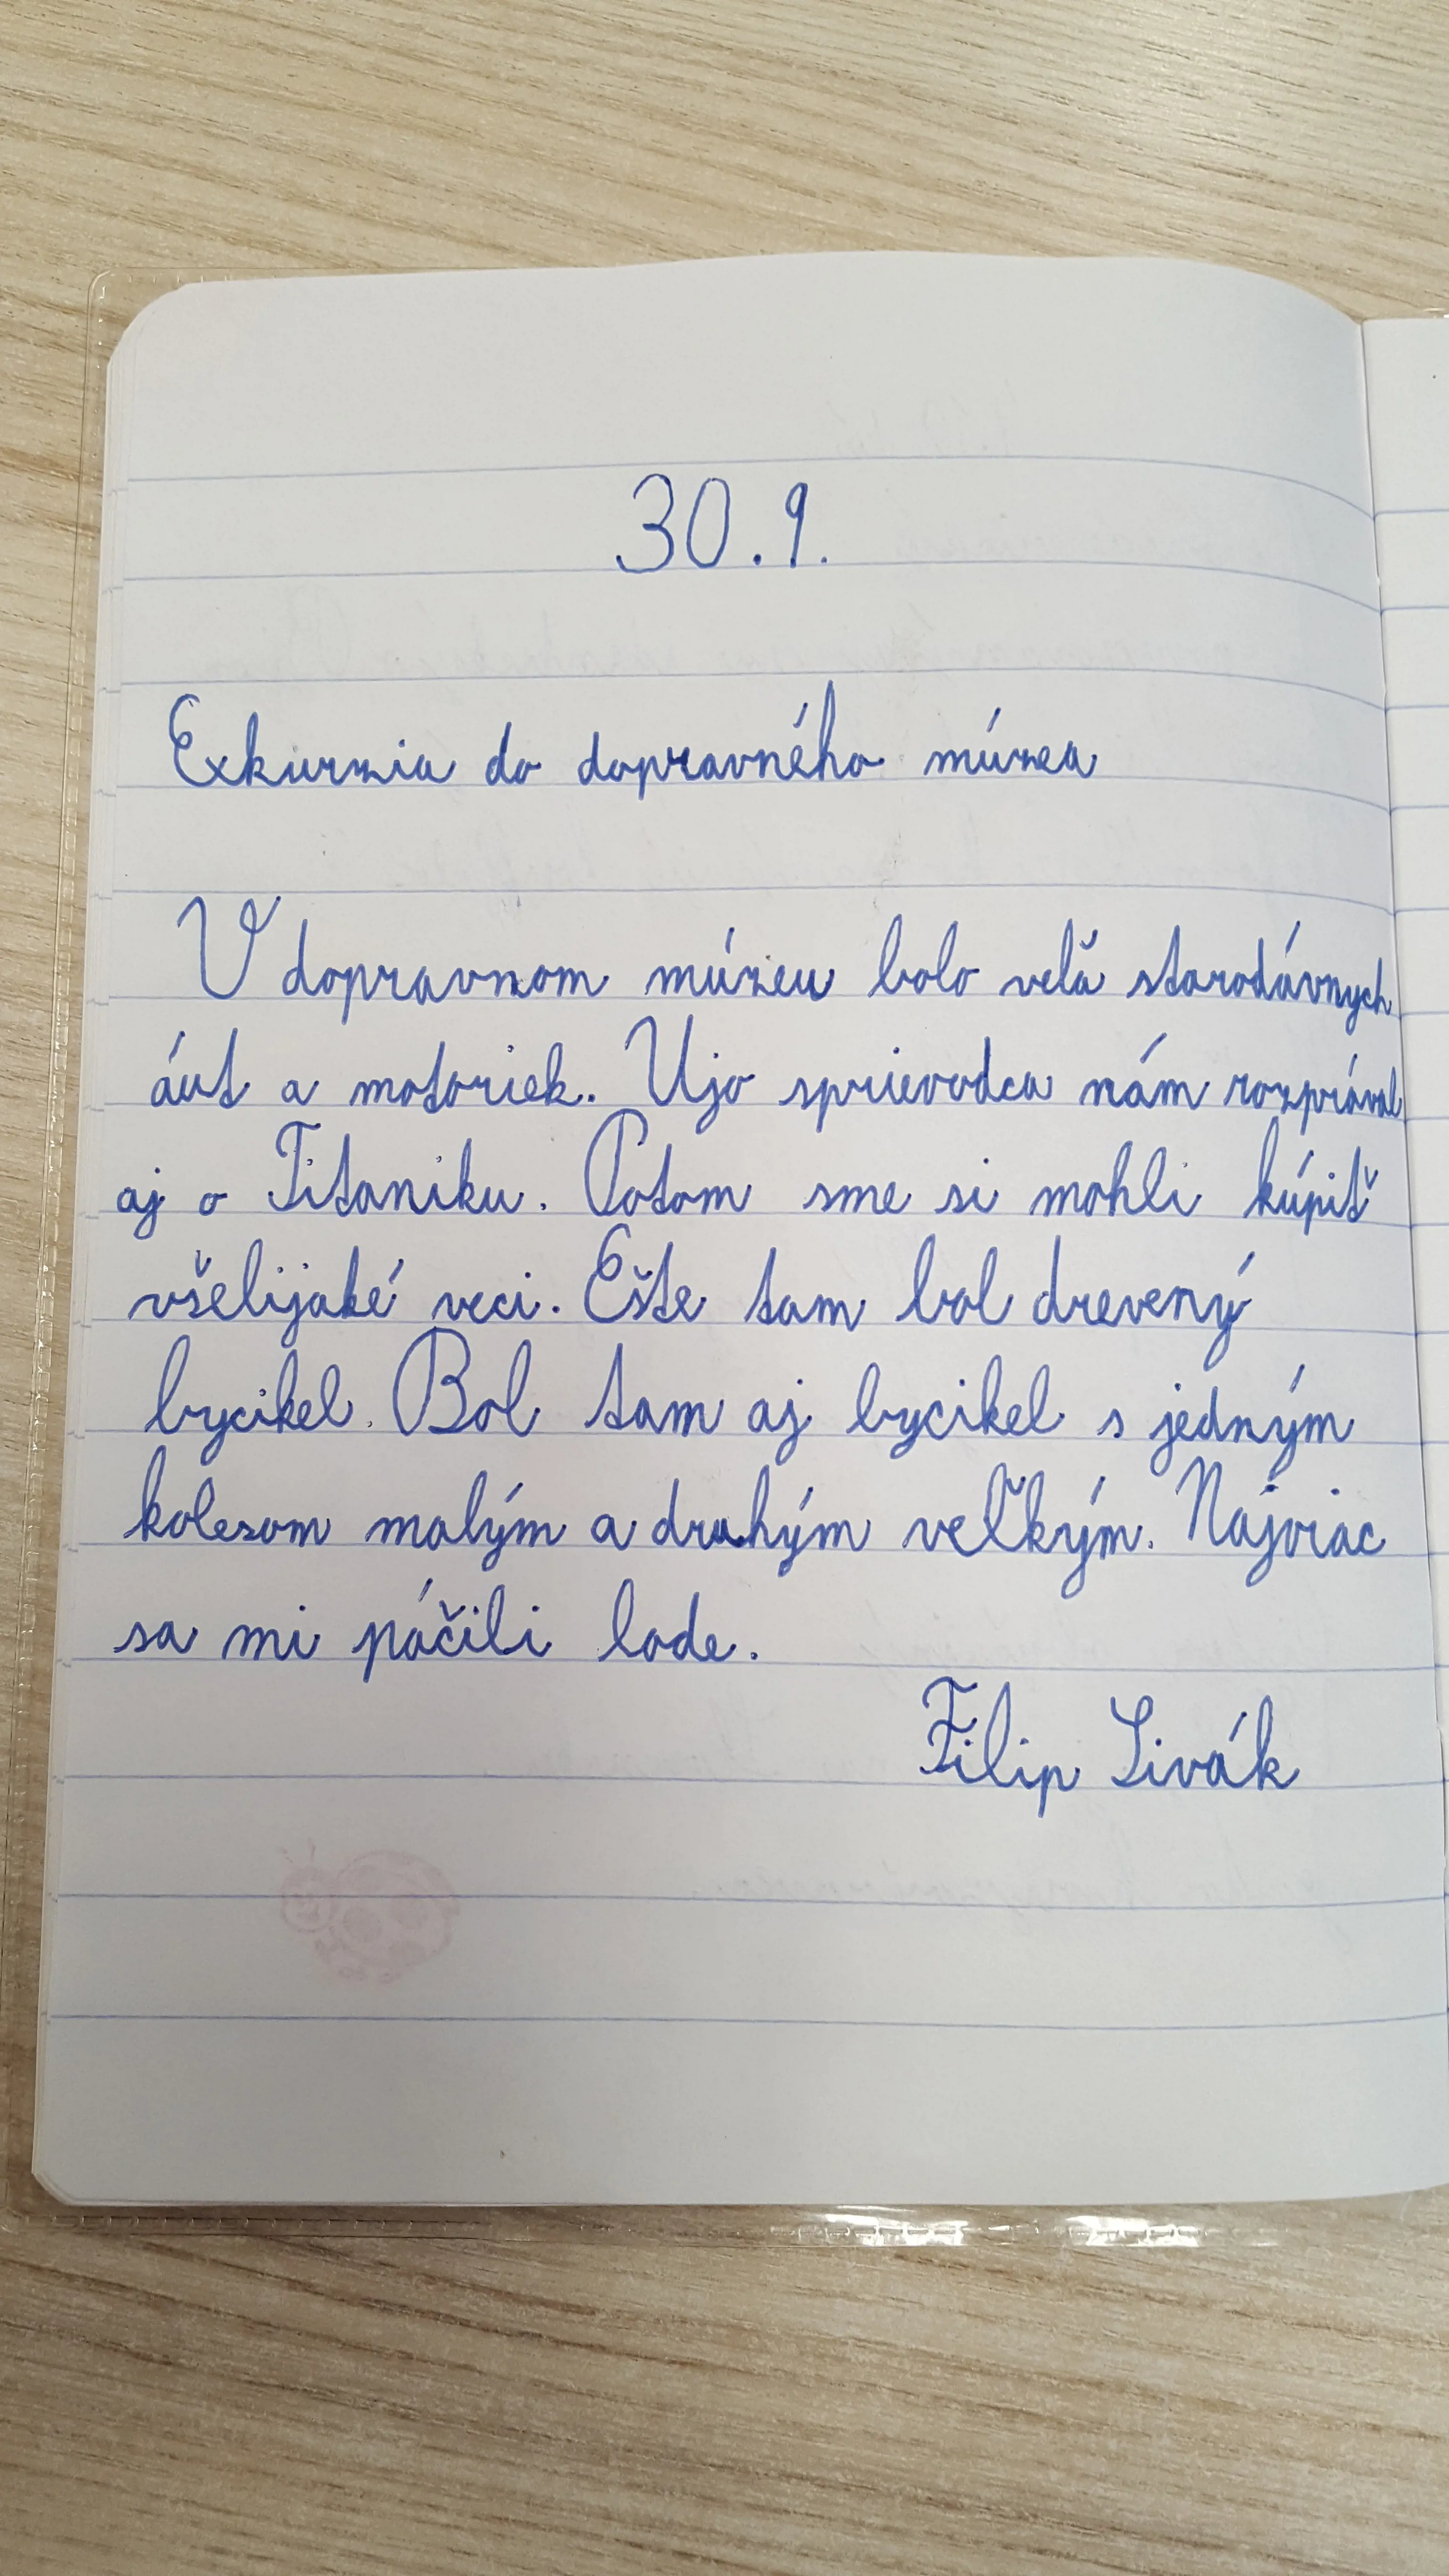 30.9.
Exkurzia do dopravného múzea
V dopravnom múzeu bolo veľa starodávnych
áut a motoriek. Ujo sprievodca nám rozprával
aj o Titaniku. Potom sme si mohli kúpiť
všelijaké veci. Ešte tam bol drevený
bycikel. Bol tam aj bycikel s jedným
kolesom malým a druhým veľkým. Najviac
sa mi páčili lode.
Filip Sivák